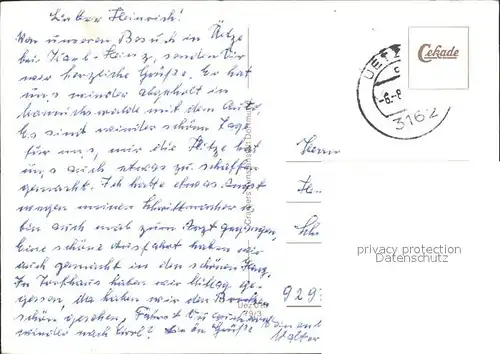 Lieber Heinrich!
Von unserem Besuch in Uetze
bei Karl-Heinz, senden Dir
wir herzliche Grüße. Er hat
uns wieder abgeholt in
mit dem Auto.
Es sind wieder schöne Tage
für uns, nur die Hitze hat
uns auch etwas zu schaffen
gemacht. Ich hatte etwas Angst
wegen meinen Schrittmacher u.
bin auch mal zum Arzt gegangen,
Eine schöne Ausfahrt haben wir
auch gemacht in den schönen Harz,
In Torfhaus haben wir Mittag ge-
gessen, da haben wir den Brocken
schön gesehen, Fährst Du auch
wieder nach Tirol? Liebe Grüße
Walter
Cekade
UETZE
-6.-8
3162
Herrn
929
privacy protection
Datenschutz